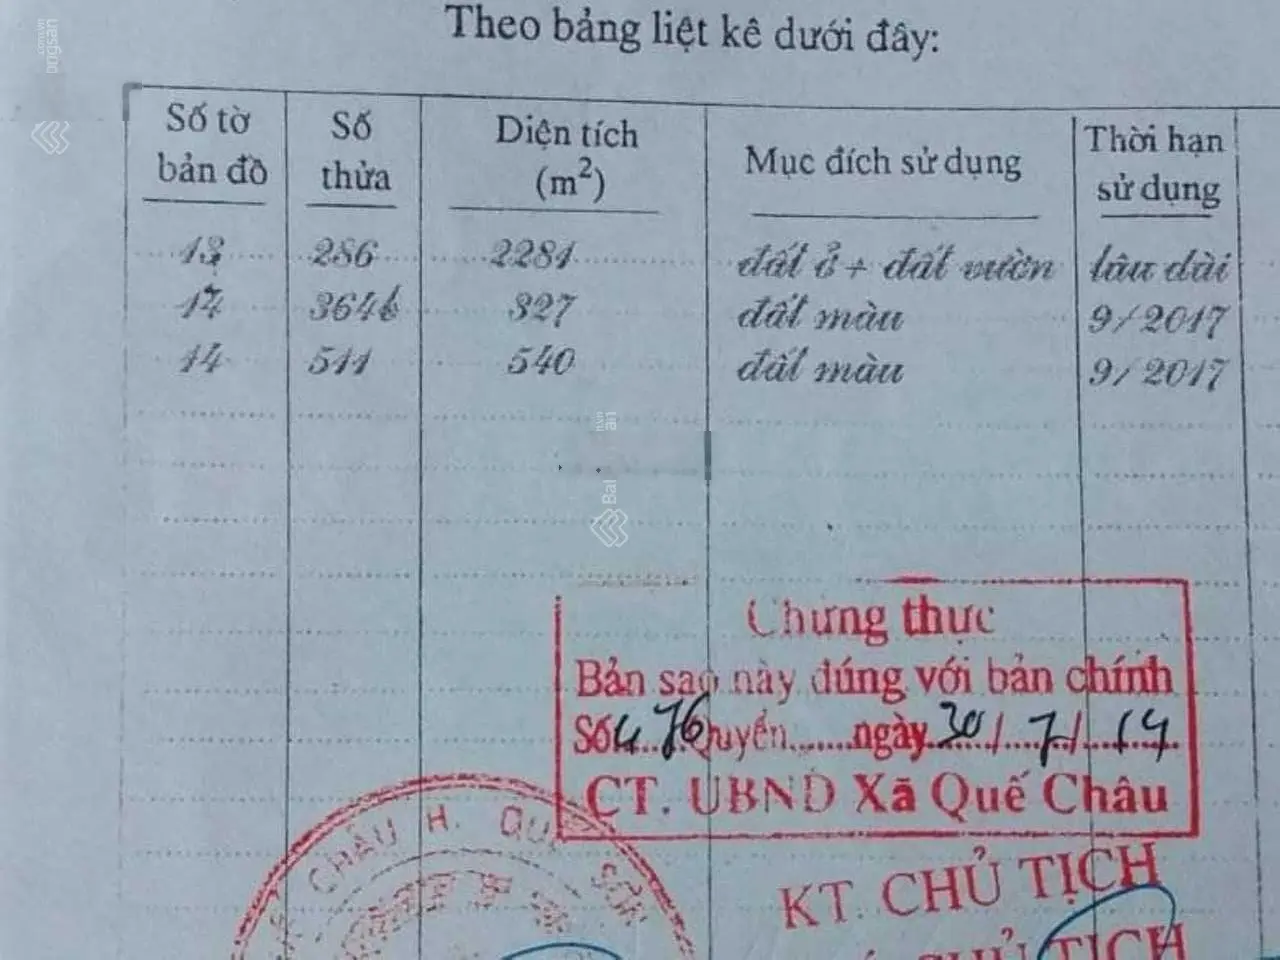 Theo bảng liệt kê dưới đây:
Số tờ bản đồ Số thửa Diện tích (m²) Mục đích sử dụng Thời hạn sử dụng
13 286 2281 đất ở + đất vườn lâu dài
14 364b 327 đất màu 9/2017
14 511 540 đất màu 9/2017
Chứng thực
Bản sao này đúng với bản chính
Số 476 Quyển......ngày 30/7/14
CT. UBND Xã Quế Châu
CHÂU H. QUẾ SƠN
KT. CHỦ TỊCH
CHỦ TỊCH